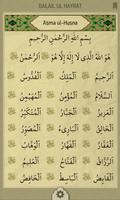 DALAIL UL HAYRAT
Asma ul-Husna
بِسْمِ اللّٰهِ الرَّحْمٰنِ الرَّحِيمِ
هُوَ اللّٰهُ الَّذِي لَا إِلٰهَ إِلَّا هُوَ الرَّحْمٰنُ
الرَّحِيمُ الْمَلِكُ الْقُدُّوسُ
السَّلَامُ الْمُؤْمِنُ الْمُهَيْمِنُ
الْعَزِيزُ الْجَبَّارُ الْمُتَكَبِّرُ
الْخَالِقُ الْبَارِئُ الْمُصَوِّرُ
الْغَفَّارُ الْقَهَّارُ الْوَهَّابُ
الرَّزَّاقُ الْفَتَّاحُ الْعَلِيمُ
الْقَابِضُ الْبَاسِطُ الْخَافِضُ